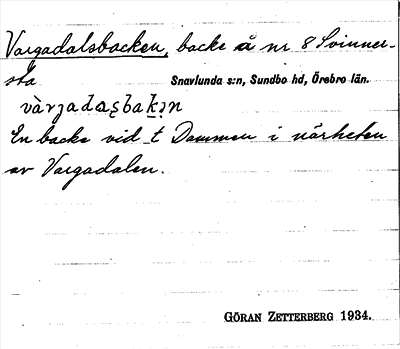 Vargadalsbacken, backe å nr 8 Svinner-
sta
Snavlunda s:n, Sundbo hd, Örebro län.
En backe vid t Dammen i närheten
av Vargadalen.
GÖRAN ZETTERBERG 1934.